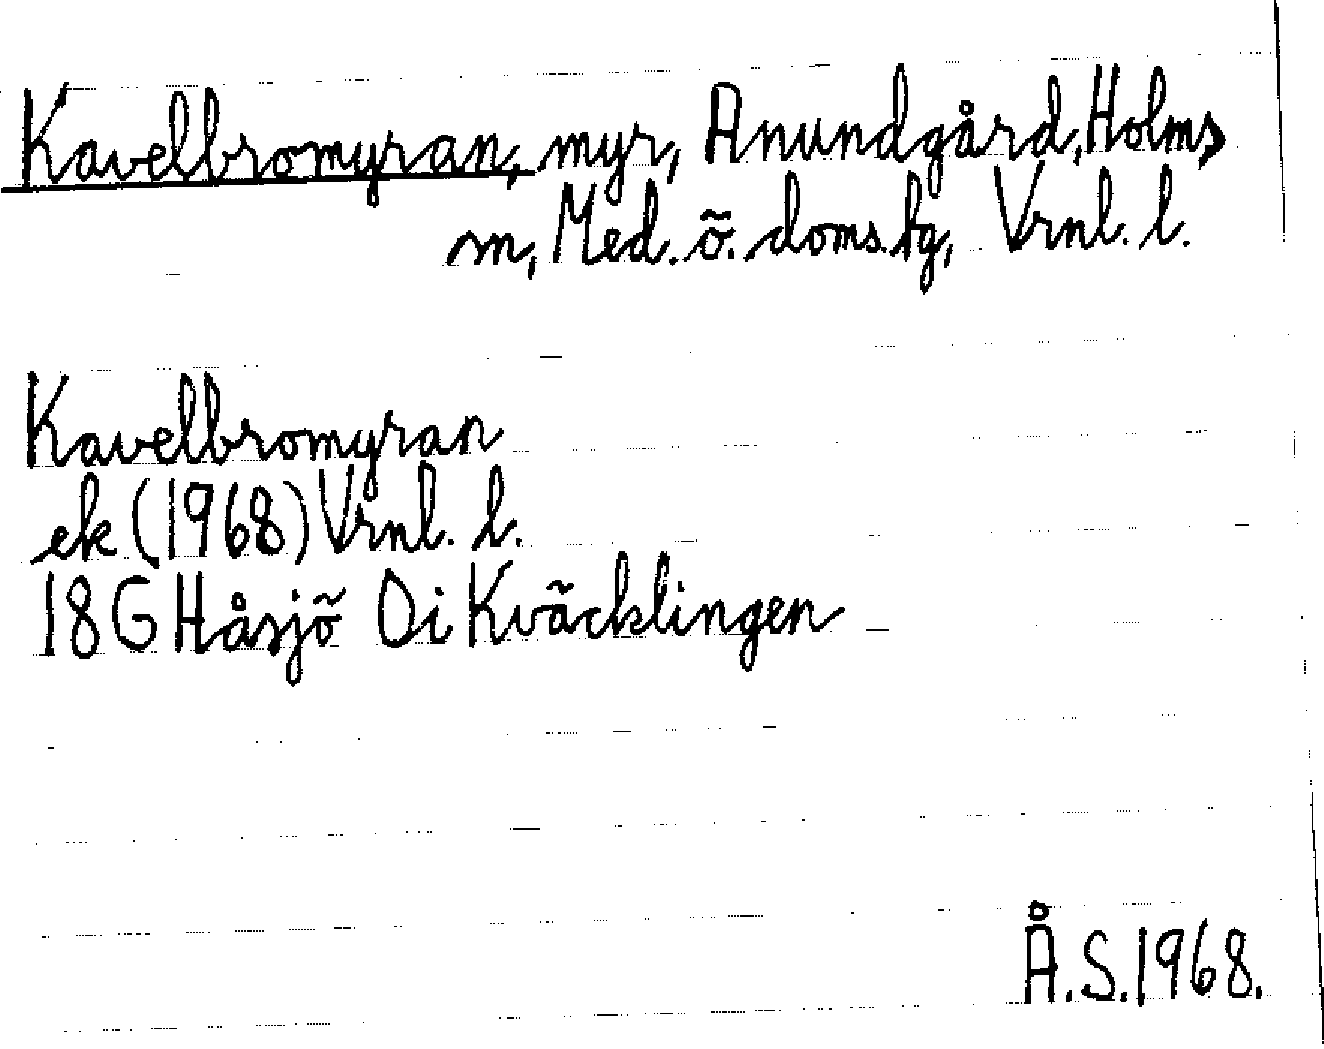 Kavelbromyran, myr, Anundgård, Holms
sn, Med. ö. doms.bg, Vrnl. l.
Kavelbromyran
ek (1968) Vrnl. l.
18G Håsjö Di Kväcklingen
Å.S.1968.